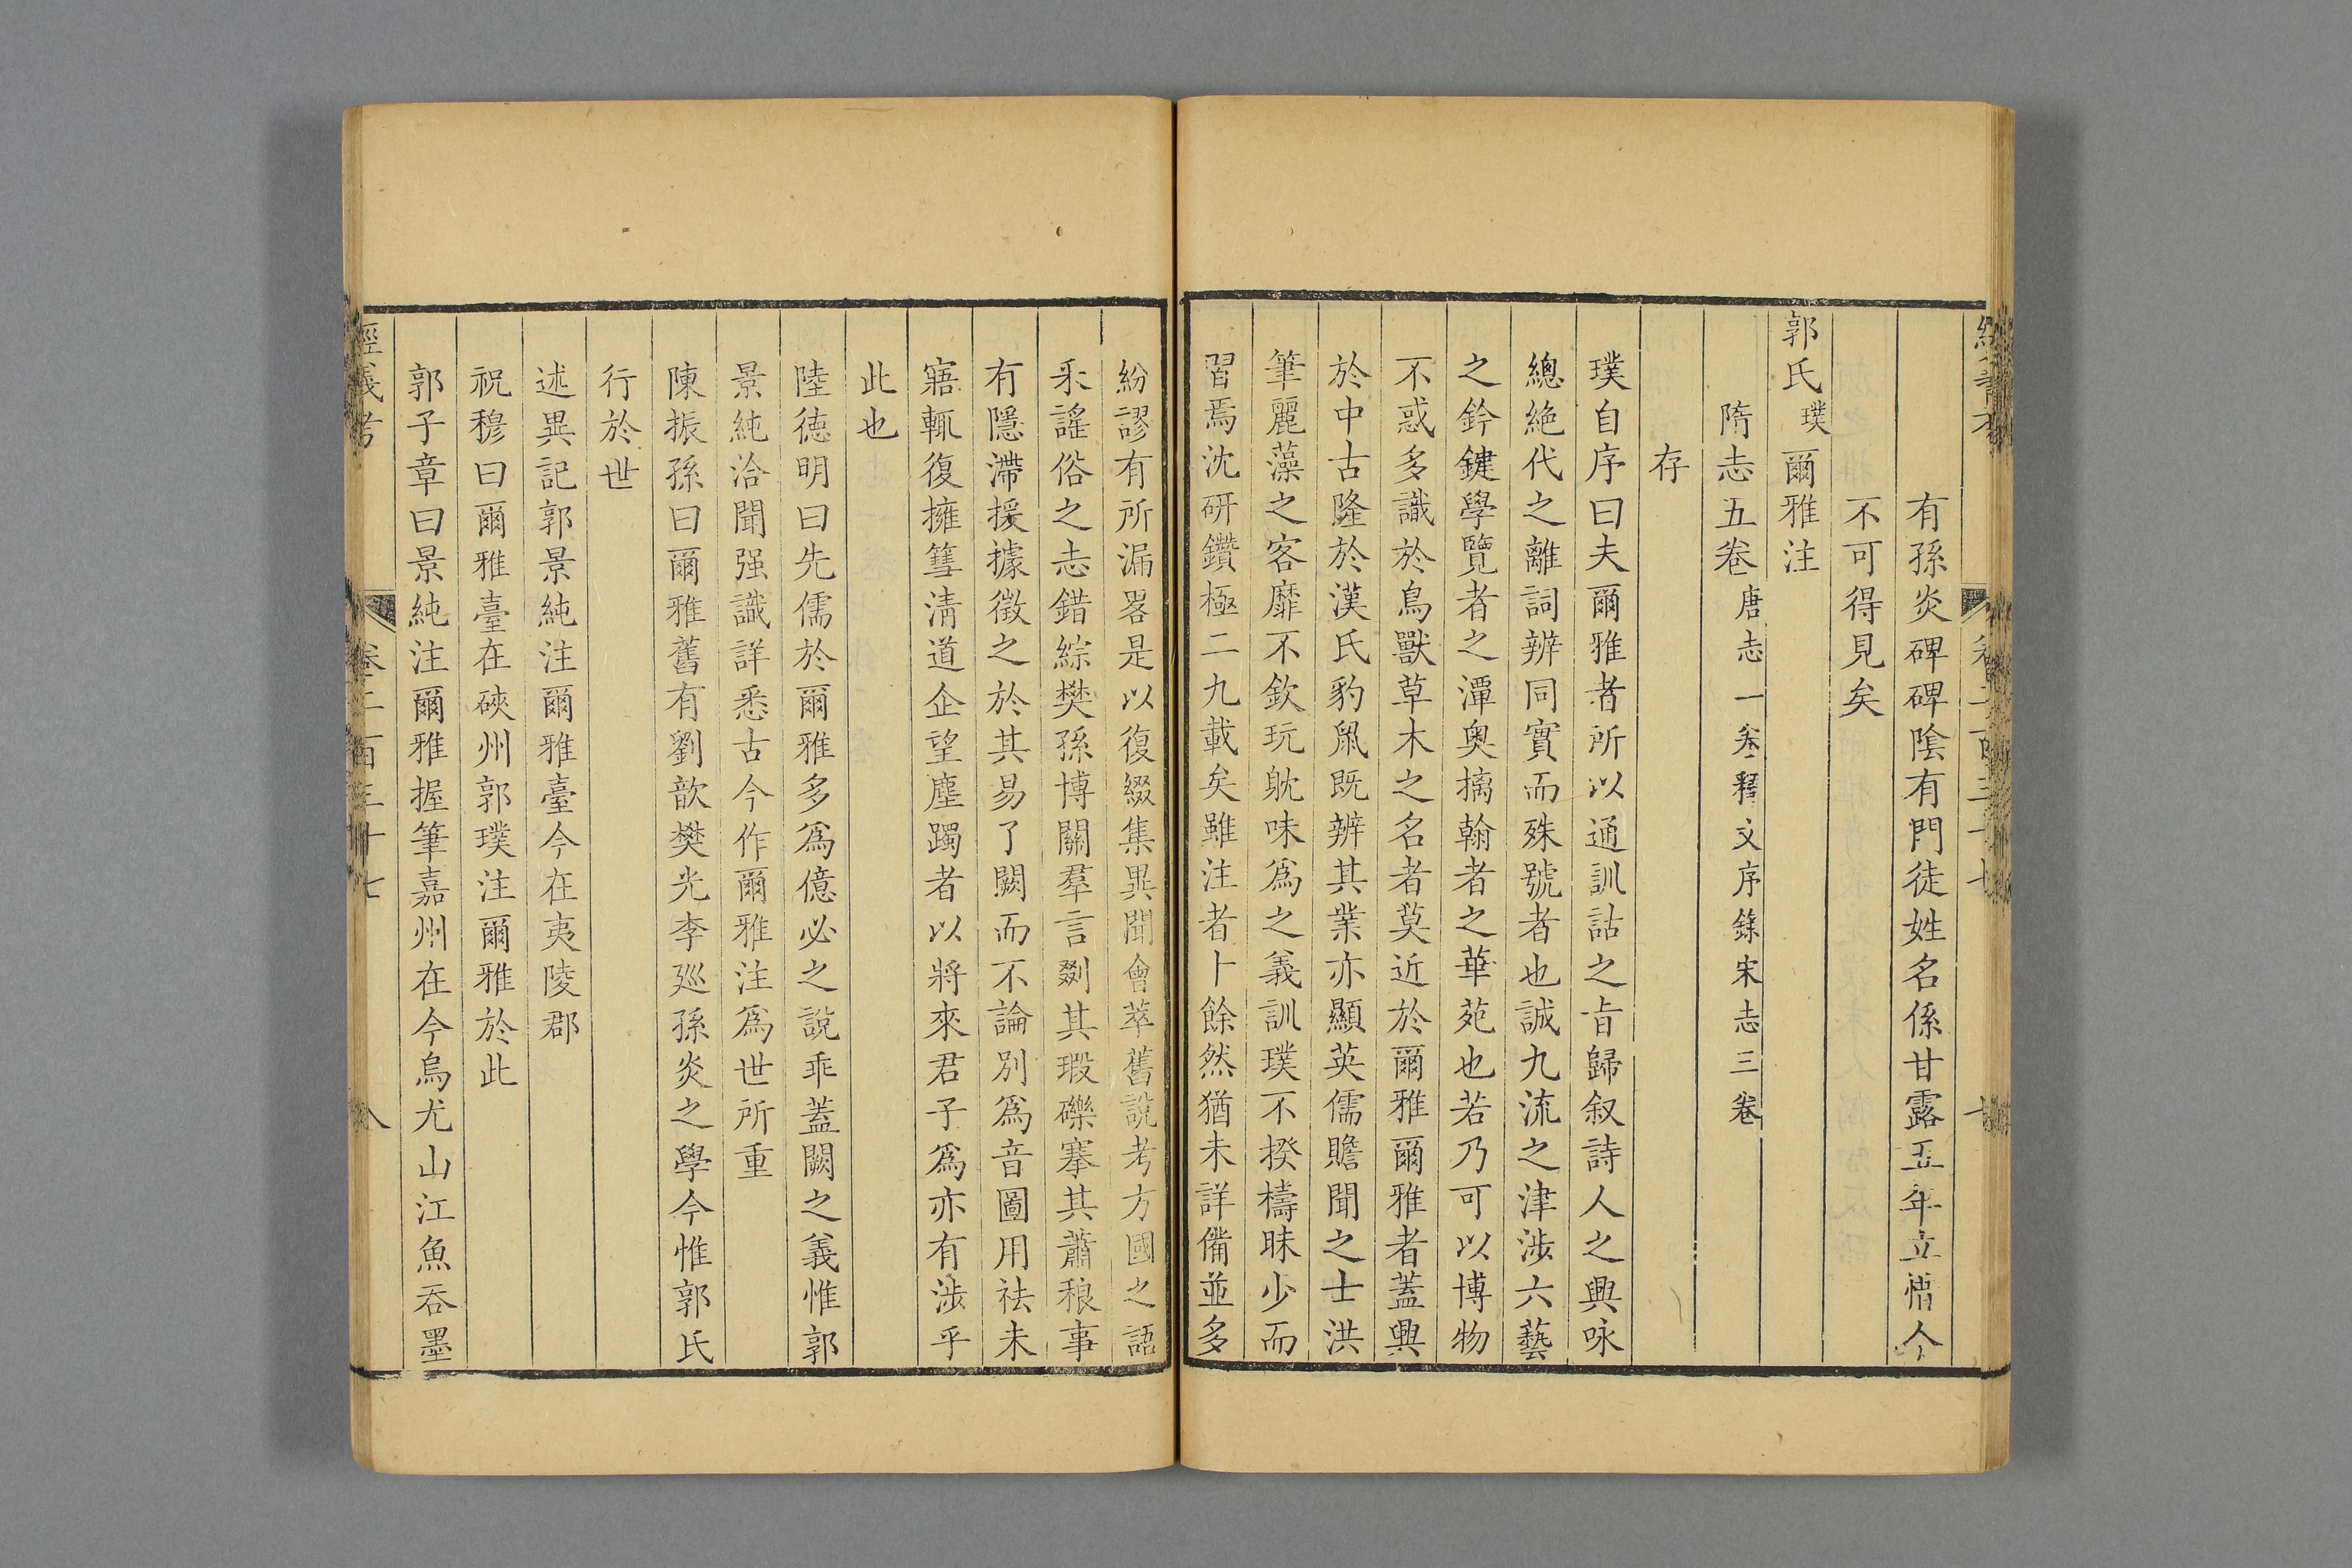 有孫炎碑碑陰有門徒姓名係甘露五年立惜今
不可得見矣
郭氏璞爾雅注
隋志五卷唐志一卷釋文序錄宋志三卷
存
璞自序曰夫爾雅者所以通訓詁之㫖歸叙詩人之興咏
總絶代之離詞辨同實而殊號者也誠九流之津涉六藝
之鈐鍵學覽者之潭奥摛翰者之華苑也若乃可以博物
不惑多識於鳥獸草木之名者莫近於爾雅爾雅者蓋興
於中古隆於漢氏豹䑕既辨其業亦顯英儒贍聞之士洪
筆麗藻之客靡不欽玩躭味為之義訓璞不揆檮昧少而
習焉沈研鑽極二九載矣雖注者十餘然猶未詳備並多
紛謬有所漏畧是以復綴集異聞會萃舊說考方國之語
采謠俗之志錯綜樊孫博關羣言剟其瑕礫搴其蕭稂事
有隱滯援據徵之於其易了闕而不論別為音圖用祛未
寤輒復擁篲清道企望塵躅者以將來君子為亦有涉乎
此也
陸德明曰先儒於爾雅多為億必之說乖蓋闕之義惟郭
景純洽聞强識詳悉古今作爾雅注為世所重
陳振孫曰爾雅舊有劉歆樊光李廵孫炎之學今惟郭氏
行於世
述異記郭景純注爾雅臺今在夷陵郡
祝穆曰爾雅臺在硤州郭璞注爾雅於此
郭子章曰景純注爾雅握筆嘉州在今烏尤山江魚吞墨
經義考
卷二百三十七
八